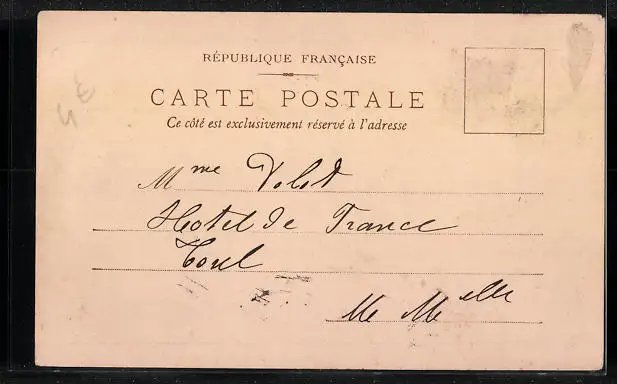 RÉPUBLIQUE FRANÇAISE
CARTE POSTALE
Ce côté est exclusivement réservé à l'adresse
Mme Volot
Hotel de France
Toul
Me Melle